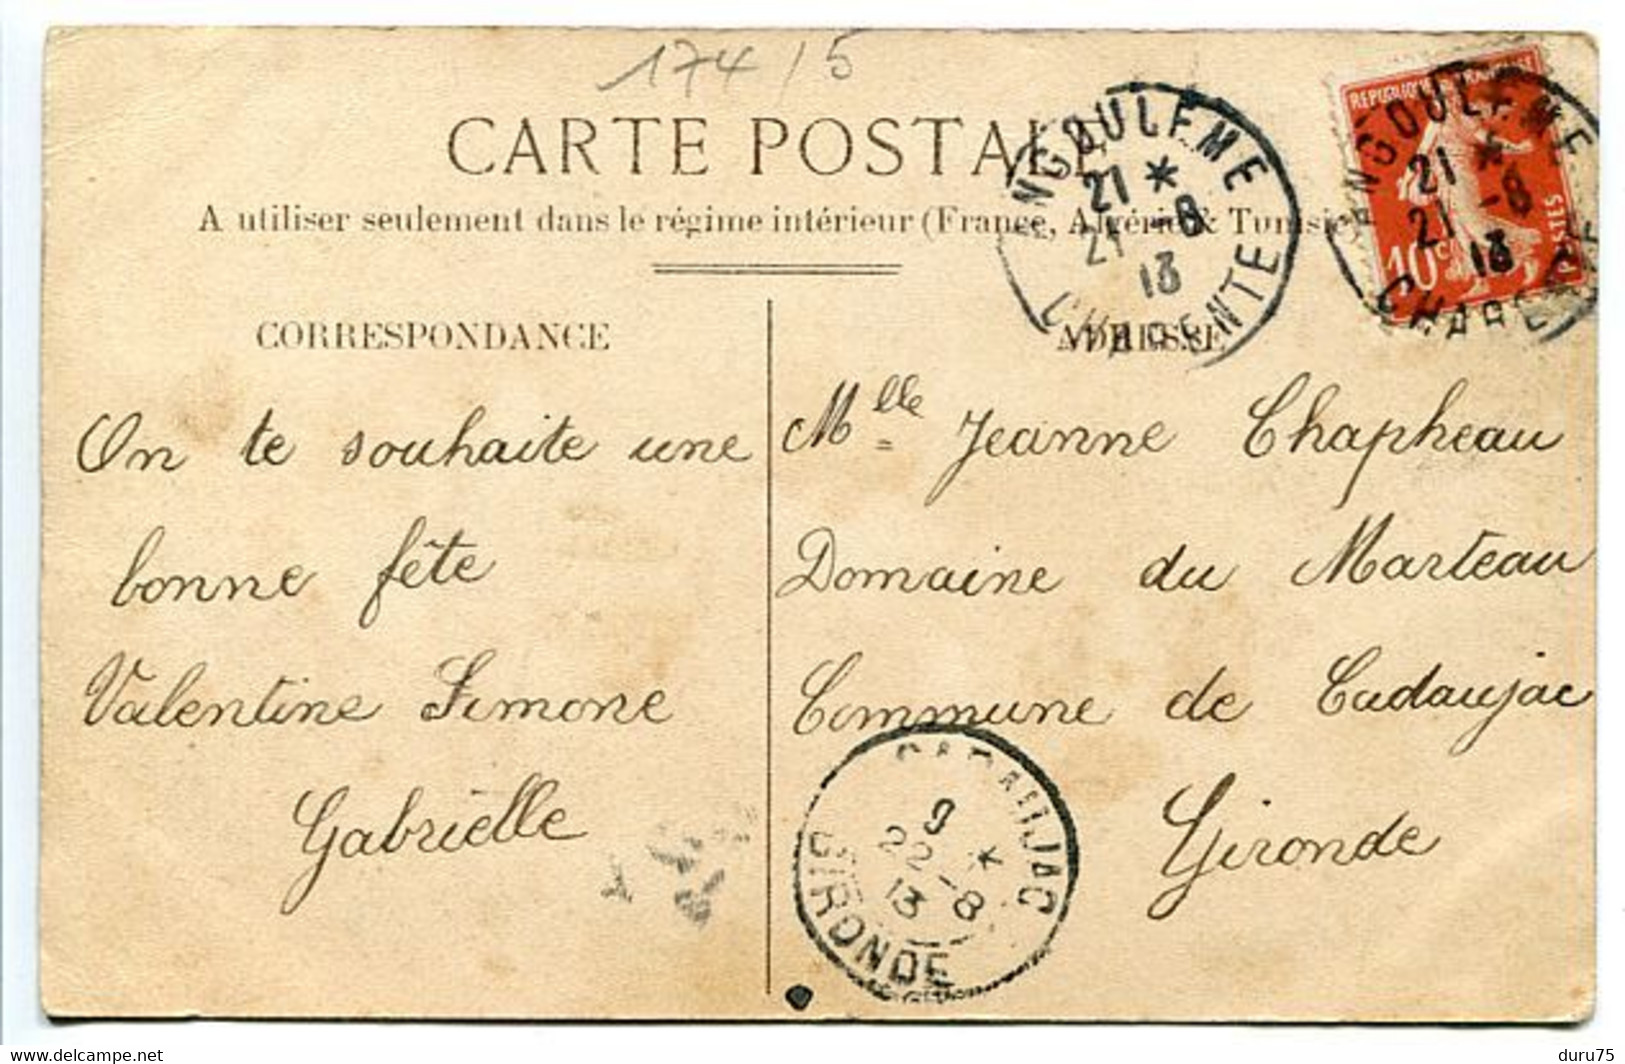 174/5
CARTE POSTALE
A utiliser seulement dans le régime intérieur (France, Algérie & Tunisie
CORRESPONDANCE
On te souhaite une
bonne fête
Valentine Simone
Gabrielle
ADRESSE
Mlle Jeanne Chapheau
Domaine du Marteau
Commune de Cadaujac
Gironde
ANGOULEME
21 *
21 -8
13
CHARENTE
REPUBLIQUE FRANÇAISE
10c
POSTES
ANGOULEME
21 *
21 -8
13
CHARENTE
CADAUJAC
9 *
22 -8
13
GIRONDE
delcampe.net
duru75